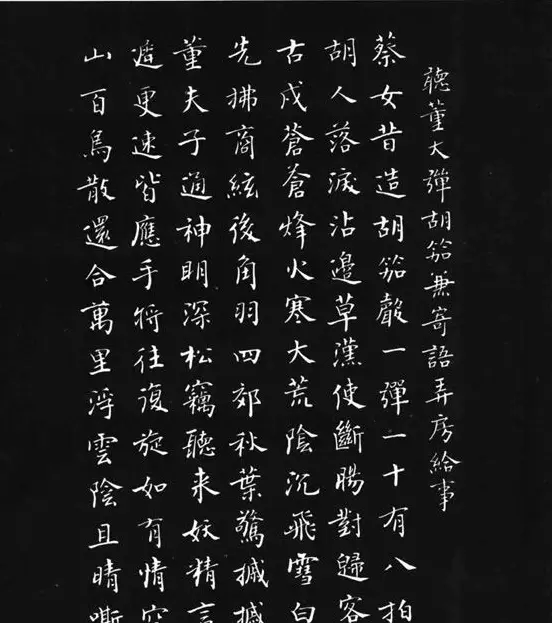 聽董大彈胡笳兼寄語弄房給事
蔡女昔造胡笳聲一彈一十有八拍
胡人落淚沾邊草漢使斷腸對歸客
古戍蒼蒼烽火寒大荒陰沉飛雪白
先拂商絃後角羽四郊秋葉驚摵摵
董夫子通神明深松竊聽来妖精言
遲更速皆應手將往復旋如有情空
山百鳥散還合萬里浮雲陰且晴嘶